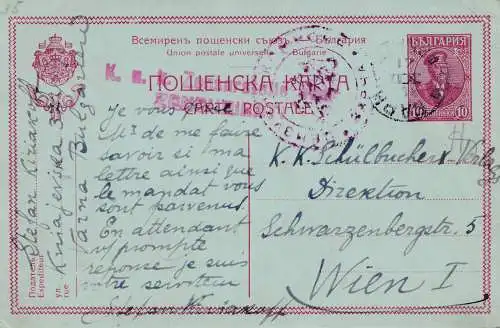 Всемиренъ пощенски съюзъ. България
Union postale universelle. Bulgarie
ПОЩЕНСКА КАРТА
CARTE POSTALE
БЪЛГАРИЯ
10 10
K. u. k.
Stefan Kiriakoff
Kniajevska
Varna Bulgarie
Податель
Expéditeur
ул.
rue
Je vous prie
Mr de me faire
savoir si ma
lettre ainsi que
le mandat vous
sont parvenus
En attendant
v/ prompte
reponse je suis
votre serviteur
Stefan Kiriakoff
K. K. Schülbucher Verlag
Direktion
Schwarzenbergstr. 5
Wien I